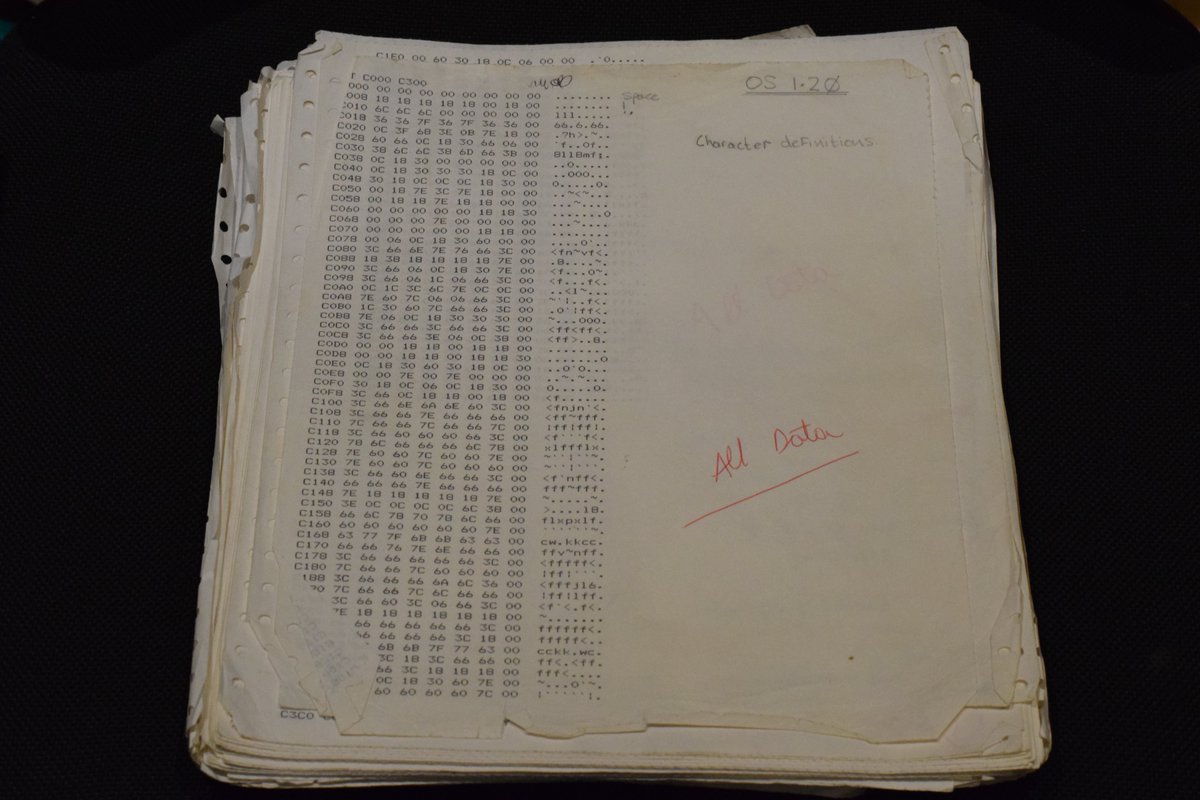 C1E0 00 60 30 18 0C 06 00 00 .`0.....
C000 C300
OS 1.20
000 00 00 00 00 00 00 00 00 ........ space
008 18 18 18 18 18 00 18 00 ........ !
C010 6C 6C 6C 00 00 00 00 00 lll..... "
C018 36 36 7F 36 7F 36 36 00 66.6.66.
C020 0C 3F 68 3E 0B 7E 18 00 .?h>.~..
C028 60 66 0C 18 30 66 06 00 `f..0f..
C030 38 6C 6C 38 6D 66 3B 00 8ll8mf;.
C038 0C 18 30 00 00 00 00 00 ..0.....
C040 0C 18 30 30 30 18 0C 00 ..000...
C048 30 18 0C 0C 0C 18 30 00 0.....0.
C050 00 18 7E 3C 7E 18 00 00 ..~<~...
C058 00 18 18 7E 18 18 00 00 ...~....
C060 00 00 00 00 00 18 18 30 .......0
C068 00 00 00 7E 00 00 00 00 ...~....
C070 00 00 00 00 00 18 18 00 ........
C078 00 06 0C 18 30 60 00 00 ....0`..
C080 3C 66 6E 7E 76 66 3C 00 <fn~vf<.
C088 18 38 18 18 18 18 7E 00 .8....~.
C090 3C 66 06 0C 18 30 7E 00 <f...0~.
C098 3C 66 06 1C 06 66 3C 00 <f...f<.
C0A0 0C 1C 3C 6C 7E 0C 0C 00 ..<l~...
C0A8 7E 60 7C 06 06 66 3C 00 ~`|..f<.
C0B0 1C 30 60 7C 66 66 3C 00 .0`|ff<.
C0B8 7E 06 0C 18 30 30 30 00 ~...000.
C0C0 3C 66 66 3C 66 66 3C 00 <ff<ff<.
C0C8 3C 66 66 3E 06 0C 38 00 <ff>..8.
C0D0 00 00 18 18 00 18 18 00 ........
C0D8 00 00 18 18 00 18 18 30 .......0
C0E0 0C 18 30 60 30 18 0C 00 ..0`0...
C0E8 00 00 7E 00 7E 00 00 00 ..~.~...
C0F0 30 18 0C 06 0C 18 30 00 0.....0.
C0F8 3C 66 0C 18 18 00 18 00 <f......
C100 3C 66 6E 6A 6E 60 3C 00 <fnjn`<.
C108 3C 66 66 7E 66 66 66 00 <ff~fff.
C110 7C 66 66 7C 66 66 7C 00 |ff|ff|.
C118 3C 66 60 60 60 66 3C 00 <f```f<.
C120 78 6C 66 66 66 6C 78 00 xlffflx.
C128 7E 60 60 7C 60 60 7E 00 ~``|``~.
C130 7E 60 60 7C 60 60 60 00 ~``|```.
C138 3C 66 60 6E 66 66 3C 00 <f`nff<.
C140 66 66 66 7E 66 66 66 00 fff~fff.
C148 7E 18 18 18 18 18 7E 00 ~.....~.
C150 3E 0C 0C 0C 0C 6C 38 00 >....l8.
C158 66 6C 78 70 78 6C 66 00 flxpxlf.
C160 60 60 60 60 60 60 7E 00 ``````~.
C168 63 77 7F 6B 6B 63 63 00 cw.kkcc.
C170 66 66 76 7E 6E 66 66 00 ffv~nff.
C178 3C 66 66 66 66 66 3C 00 <fffff<.
C180 7C 66 66 7C 60 60 60 00 |ff|```.
188 3C 66 66 66 6A 6C 36 00 <fffjl6.
90 7C 66 66 7C 6C 66 66 00 |ff|lff.
3C 66 60 3C 06 66 3C 00 <f`<.f<.
7E 18 18 18 18 18 18 00 ~.......
66 66 66 66 66 3C 00 ffffff<.
66 66 66 66 3C 18 00 fffff<..
6B 6B 7F 77 63 00 cckk.wc.
3C 18 3C 66 66 00 ff<.<ff.
66 3C 18 18 18 00 fff<....
0C 18 30 60 7E 00 ~...0`~.
60 60 60 60 7C 00 |`````|.
C3C0
Character definitions
All Data